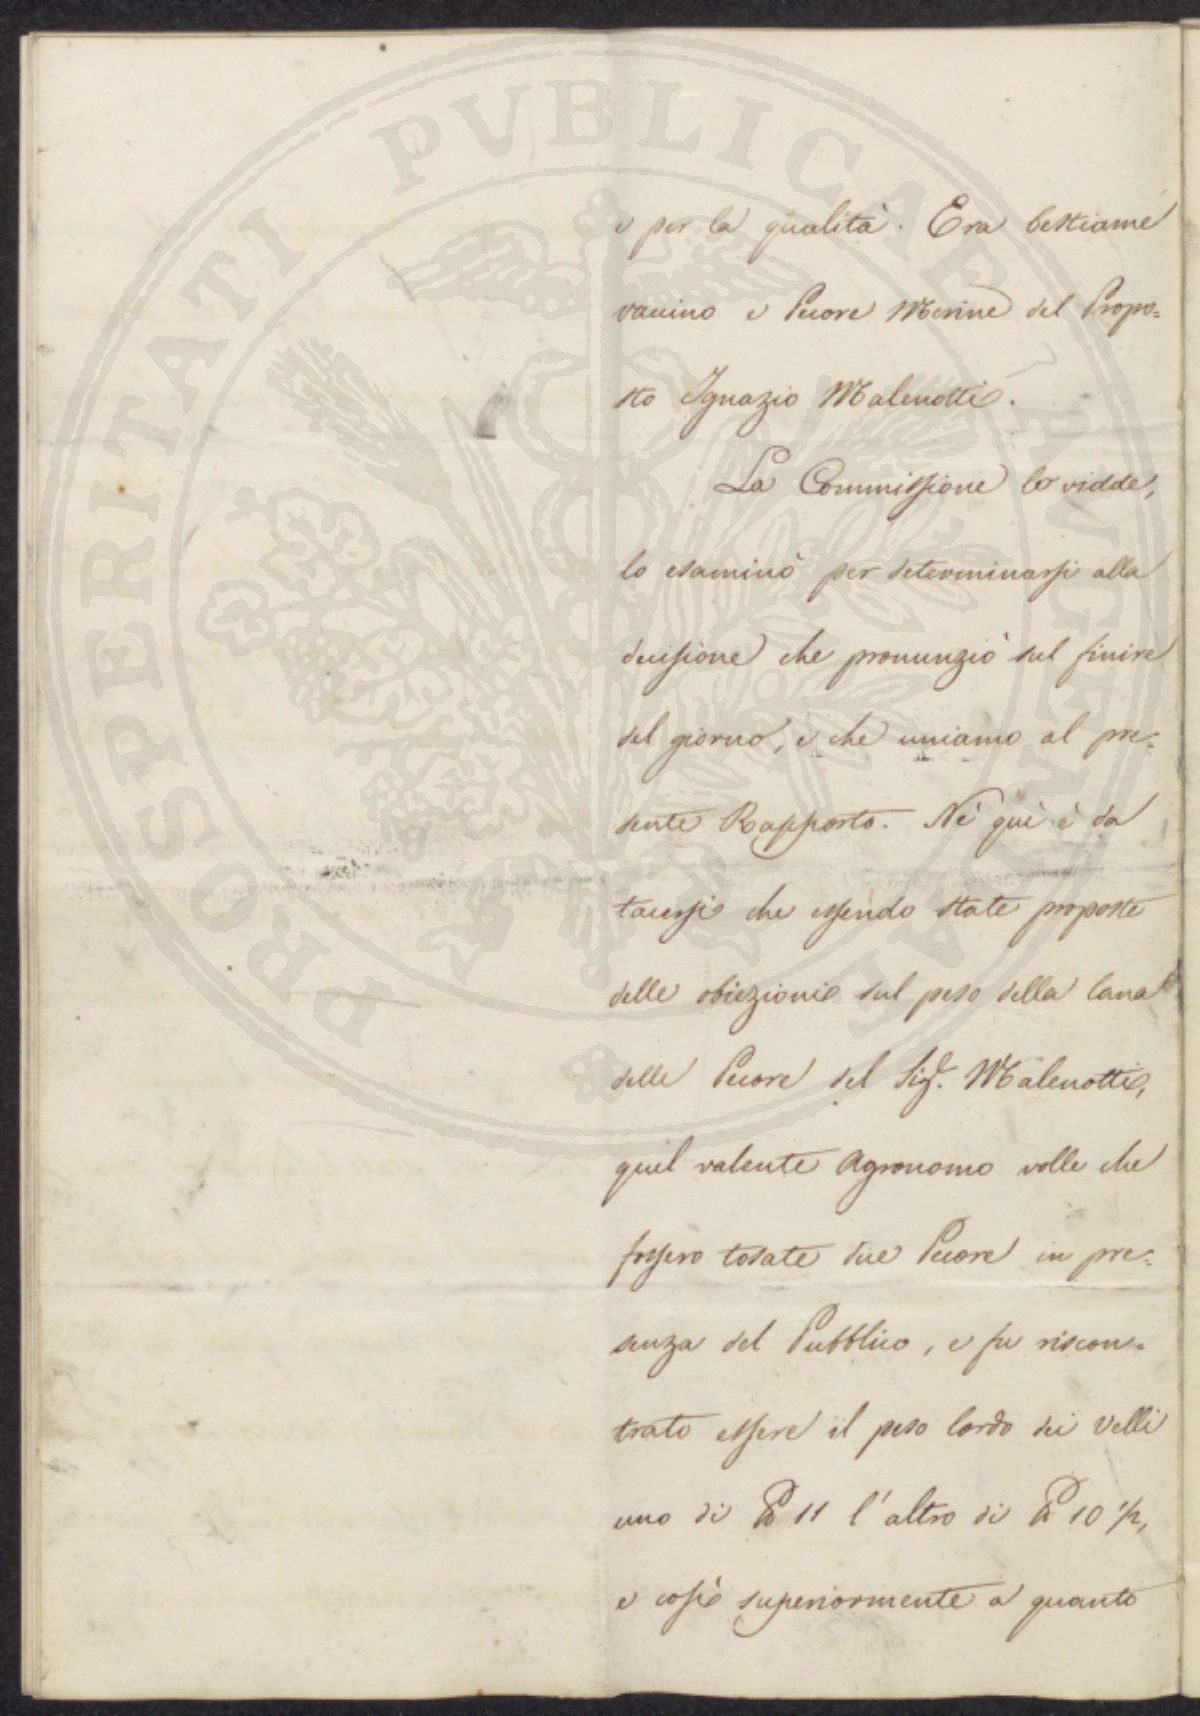 e per la qualità. Era bestiame
vaccino e Pecore Merine del Propo=
sto Ignazio Malenotti.
La Commissione lo vidde,
lo esaminò per determinarsi alla
decisione che pronunziò sul finire
del giorno, e che uniamo al pre=
sente Rapporto. Nè quì è da
tacersi che essendo state proposte
delle obiezioni sul peso della lana
delle Pecore del Sigr. Malenotti,
quel valente Agronomo volle che
fossero tosate due Pecore in pre=
senza del Pubblico, e fu riscon=
trato essere il peso lordo dei Velli
uno di ℔ 11 l'altro di ℔ 10 ½,
e così superiormente a quanto
PROSPERITATI PVBLICAE AVGENDAE